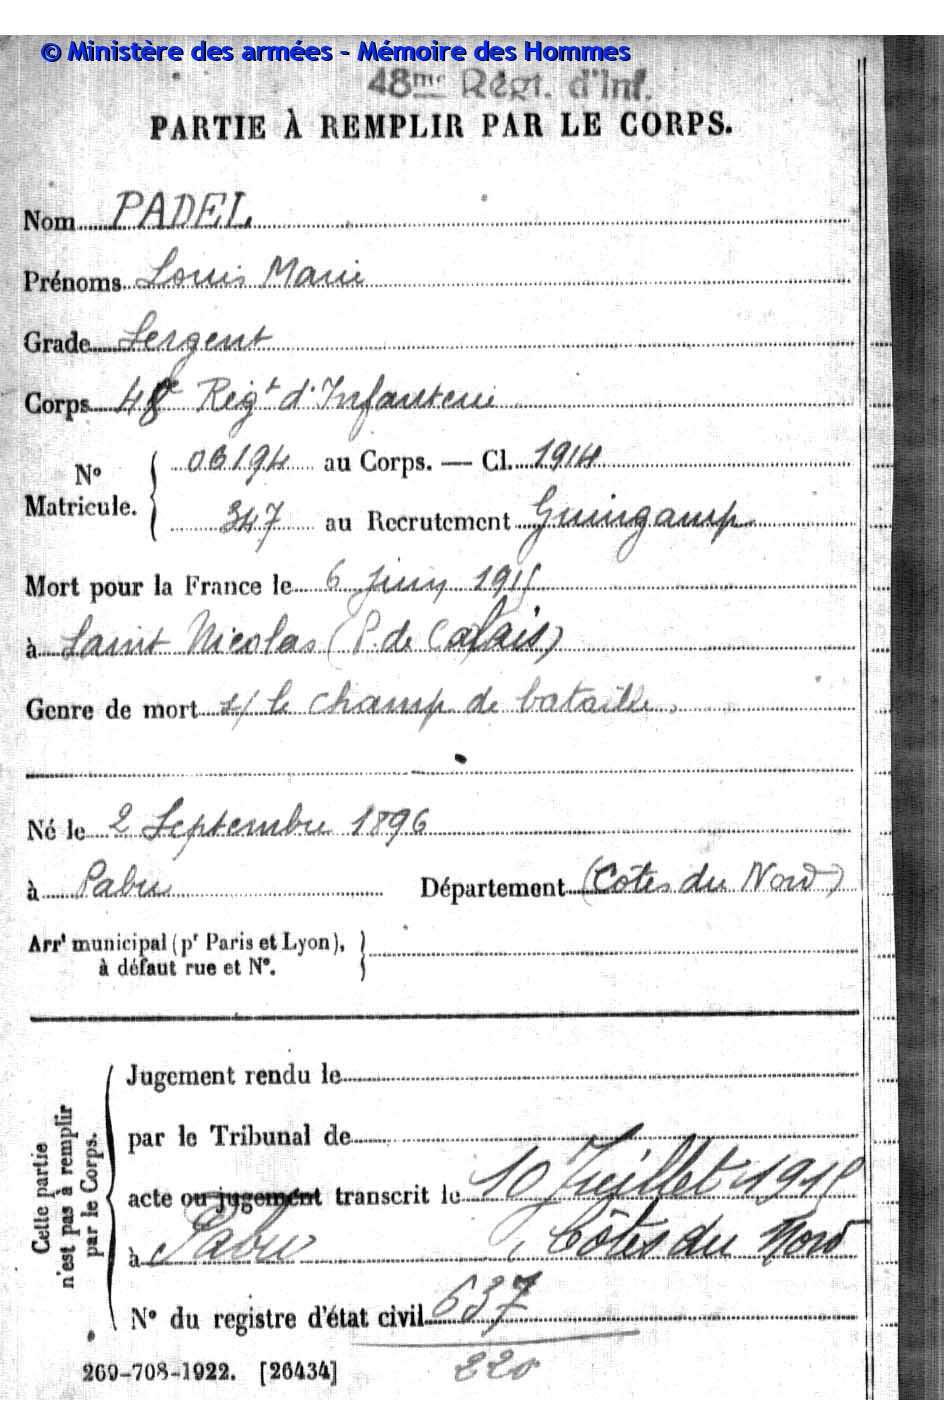 © Ministère des armées - Mémoire des Hommes
48me Régt. d'Inf.
PARTIE À REMPLIR PAR LE CORPS.
Nom PADEL
Prénoms Louis Marie
Grade Sergent
Corps 48e Régt d'Infanterie
No Matricule. { 06194 au Corps. — Cl. 1914
347 au Recrutement Guingamp
Mort pour la France le 6 Juin 1915
à Saint Nicolas (P. de Calais)
Genre de mort s/ le champ de bataille
Né le 2 Septembre 1896
à Pabu Département (Côtes du Nord)
Arrt municipal (pr Paris et Lyon), }
à défaut rue et No.
Cette partie
n'est pas à remplir
par le Corps.
Jugement rendu le
par le Tribunal de
acte ou jugement transcrit le 10 Juillet 1915
à Pabu, Côtes du Nord
No du registre d'état civil 637
220
269-708-1922. [26434]